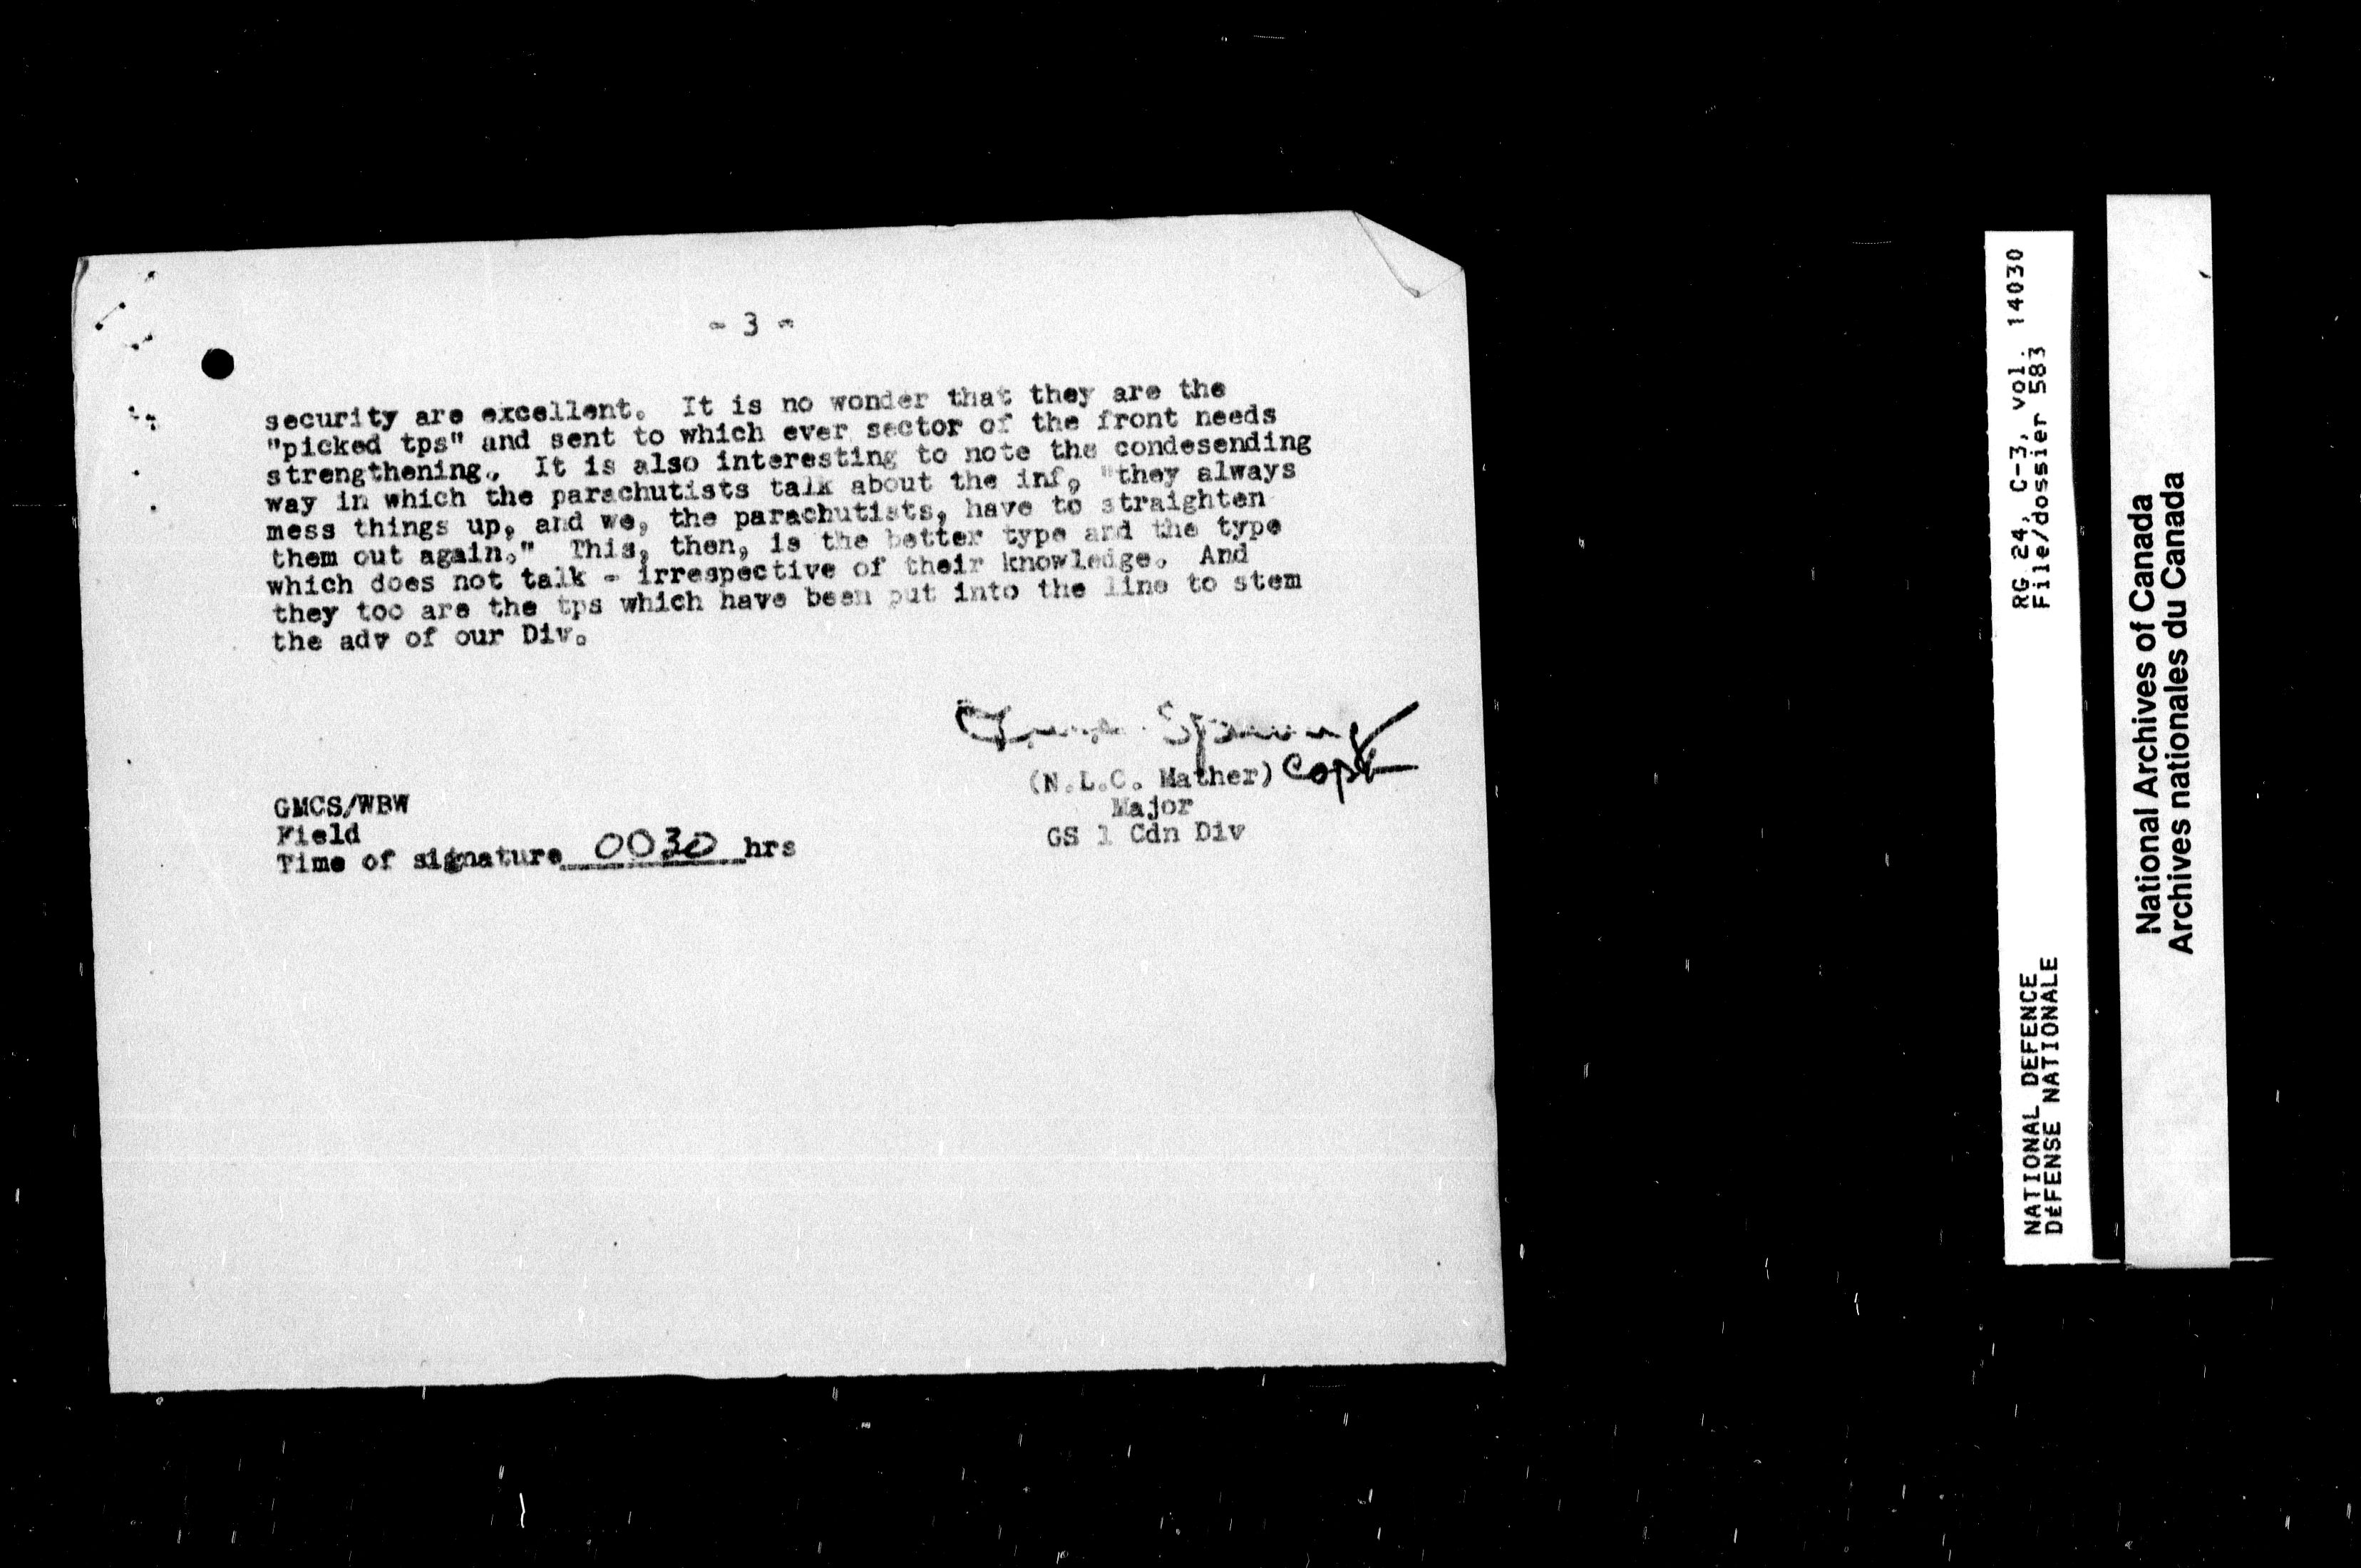 - 3 -
security are excellent. It is no wonder that they are the
"picked tps" and sent to which ever sector of the front needs
strengthening. It is also interesting to note the condesending
way in which the parachutists talk about the inf, "they always
mess things up, and we, the parachutists, have to straighten
them out again." This, then, is the better type and the type
which does not talk - irrespective of their knowledge. And
they too are the tps which have been put into the line to stem
the adv of our Div.
(N.L.C. Mather) Capt
Major
GS 1 Cdn Div
GMCS/WBW
Field
Time of signature 0030 hrs
RG 24, C-3, vol. 14030
File/dossier 583
NATIONAL DEFENCE
DÉFENSE NATIONALE
National Archives of Canada
Archives nationales du Canada